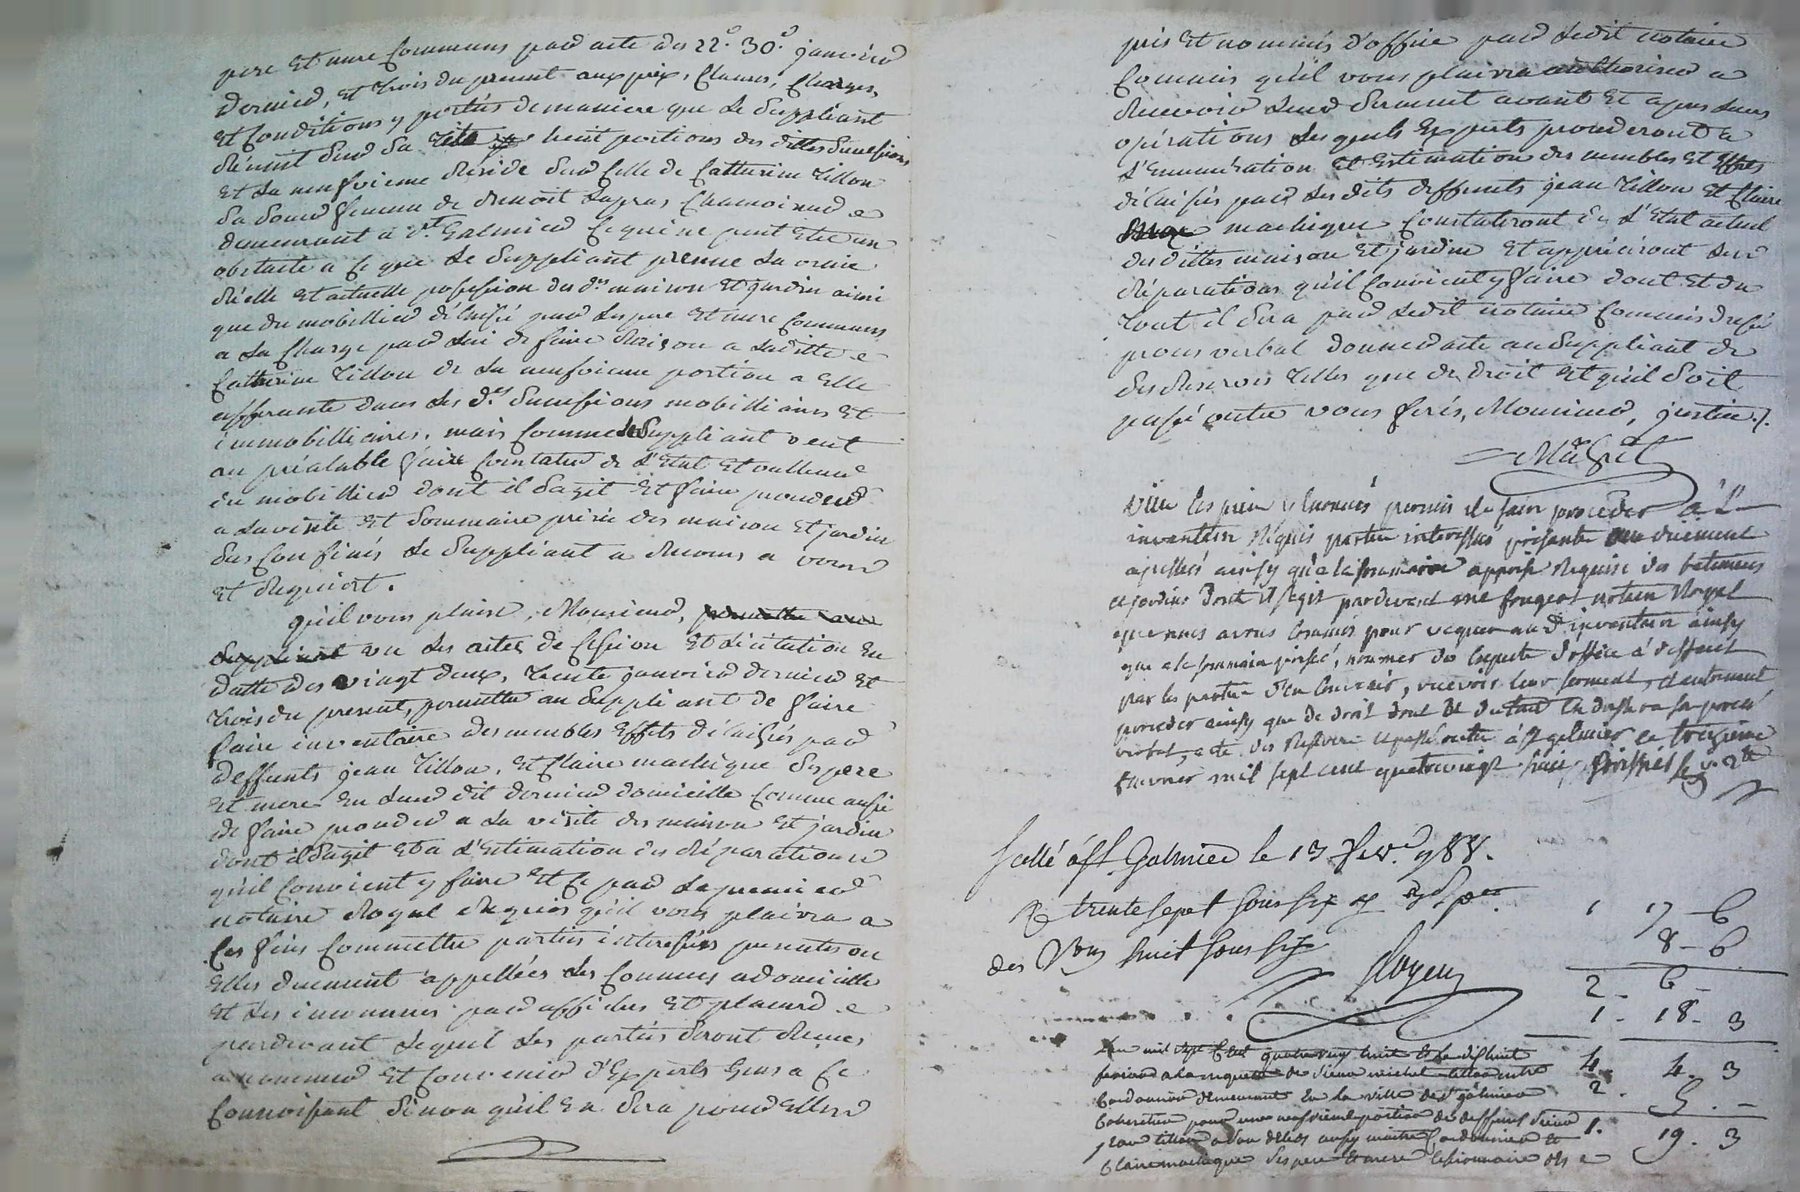 pere et mere communs par acte des 22e 30e janvier
dernier, et trois du present aux prix, clauses, charges,
et conditions y portés de maniere que le suppliant
réunit sur sa tete huit portions des dittes successions
et la neufvieme réside sur celle de Catherine Tillon
sa soeur femme de Benoit Chamoinard
demeurant a St Galmier ce qui ne peut etre un
obstacle a ce que le suppliant prenne la vraie
réelle et actuelle possession des d. maison et jardin ainsi
que du mobillier délaissé par les pere et mere communs
a la charge par lui de faire raison a laditte
Catherine Tillon de la neufvieme portion a elle
afferante dans les d. successions mobilliaires et
immobilliaires, mais comme le suppliant veut
au préalable faire constater de l'etat et valleur
du mobillier dont il s'agit et faire proceder
a la visite et sommaire prisée des maison et jardin
sus confinés le suppliant a recours a vous
et requiert.
qu'il vous plaise, Monsieur, permettre au
suppliant vu les actes de cession et licitation en
datte des vingt deux, trente janvier dernier et
trois du present, permettre au suppliant de faire
faire inventaire des meubles effets délaissés par
deffunts jean Tillon, et Claire machique ses pere
et mere en leur dit dernier domicille comme aussi
de faire proceder a la visite des maison et jardin
dont il s'agit et a l'estimation des réparations
qu'il convient y faire et ce par le premier
notaire Royal requis qu'il vous plaira a
ces fins commettre parties interessées presentes ou
elles duement appellées les connues a domicille
et les inconnues par affiches et placard
pardevant lequel les parties seront tenues
a nommer et convenir d'experts gens a ce
connoissant sinon qu'il en sera par elles
pris et nommés d'office par ledit notaire
commis qu'il vous plaira authoriser a
recevoir leur serment avant et apres leurs
opérations lesquels experts procederont a
l'enumération et estimation des meubles et effets
délaissés par lesdits deffunts jean Tillon et Claire
machique constateront de l'etat actuel
des dittes maison et jardin et apprécieront les
réparations qu'il convient y faire dont et du
tout il sera par ledit notaire commis dressé
procés verbal donner acte au suppliant de
ses reserves telles que de droit et qu'il soit
passé outre vous ferés, Monsieur, justice./.
Vu les pieces enoncées permis de faire proceder à l'
inventaire requis parties interessées présentes ou duement
apellés ainsy qu'a la sommaire apprise requise des batiments
et jardins dont il s'agit pardevant me fougerot notaire Royal
que nous avons commis pour vaquer au d. inventaire ainsy
que a la sommaire prisée, nommer des experts d'office à deffaut
par les parties d'en convenir, recevoir leur serment, et autrement
proceder ainsy que de droit dont et du tout il dressera son procés
verbal, acte des reserves et passé outre à St galmier ce treizieme
fevrier mil sept cent quatre vingt huit,
scellé a St Galmier le 13 fevr. 788.
R trente sept sous six
des Vons huit sous six
1 17 - 6
8 - 6
2 - 6 -
1 - 18 - 3
4. 4. 3
2. 5. -
1. 19. 3
L'an mil sept cent quatre vingt huit et le dishuit
fevrier a la requete de sieur michel tillon maitre
Cordonnier demeurant en la ville de St galmier
coheritier pour une neufvieme portion de deffunt sieur
jean tillon ainsy maitre Cordonnier et
Claire machique ses pere et mere cessionnaire des